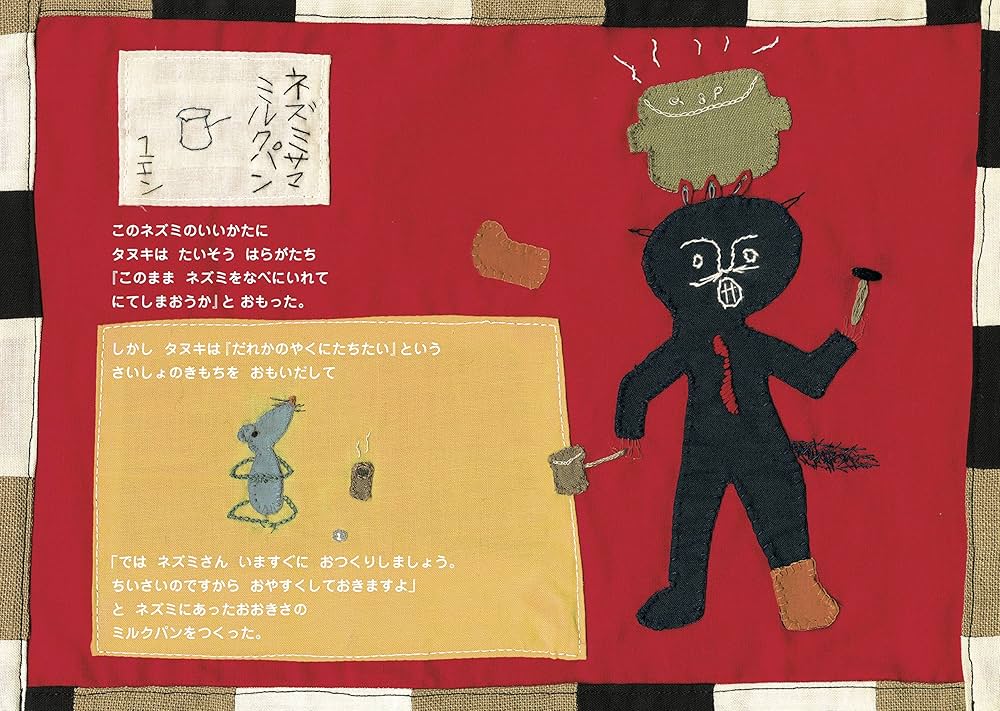 ネズミサマ
ミルクパン
1エン
このネズミのいいかたに
タヌキは たいそう はらがたち
『このまま ネズミをなべにいれて
にてしまおうか』と おもった。
しかし タヌキは『だれかのやくにたちたい』という
さいしょのきもちを おもいだして
「では ネズミさん いますぐに おつくりしましょう。
ちいさいのですから おやすくしておきますよ」
と ネズミにあったおおきさの
ミルクパンをつくった。